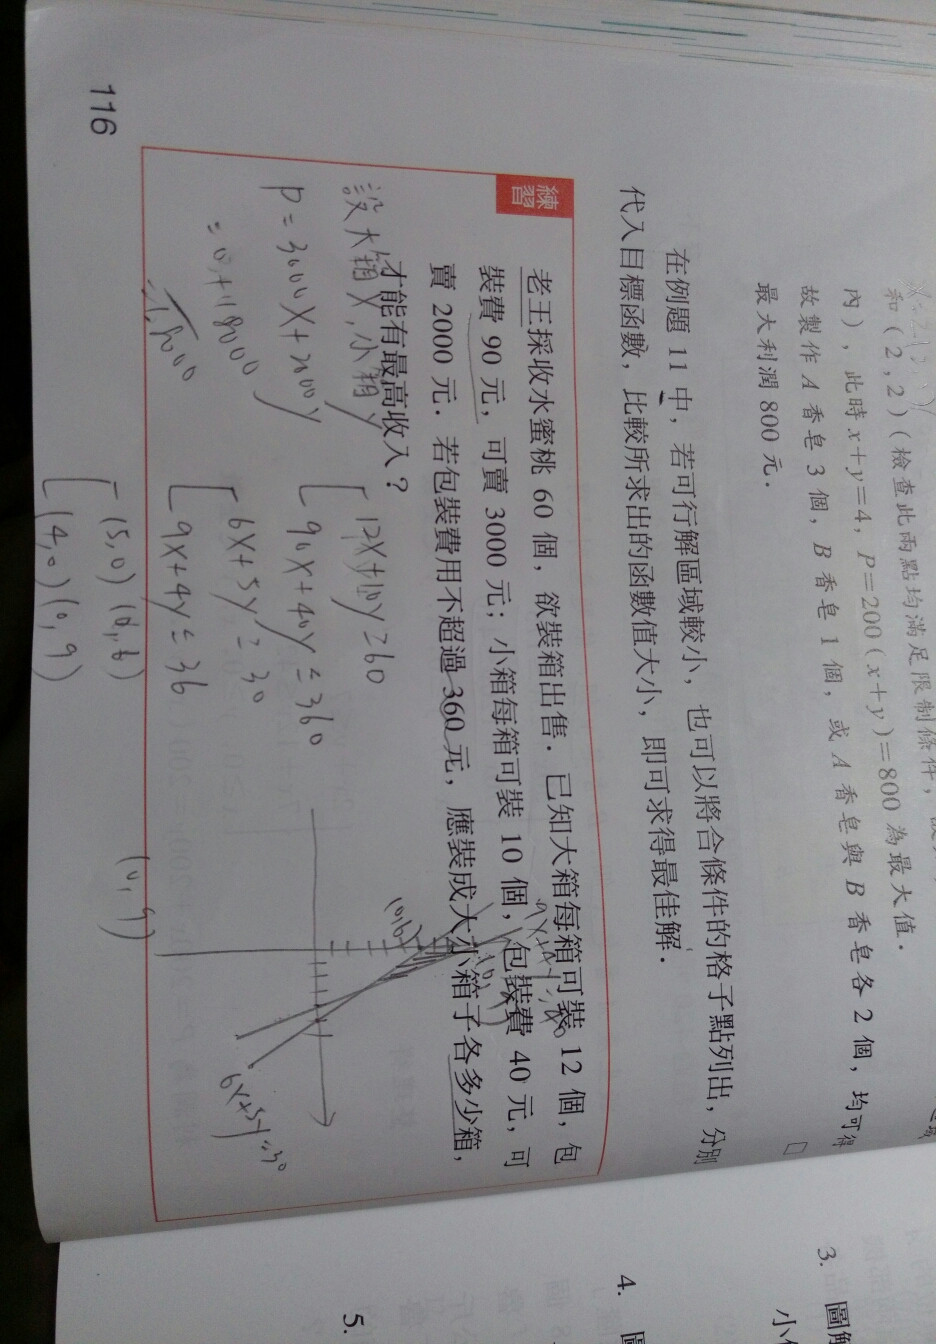 和(2,2)(檢查此兩點均滿足限制條件,
內),此時x+y=4,P=200(x+y)=800為最大值.
故製作A香皂3個,B香皂1個,或A香皂與B香皂各2個,均可得
最大利潤800元. □
在例題11中,若可行解區域較小,也可以將合條件的格子點列出,分別
代入目標函數,比較所求出的函數值大小,即可求得最佳解.
練習
老王採收水蜜桃60個,欲裝箱出售.已知大箱每箱可裝12個,包
裝費90元,可賣3000元;小箱每箱可裝10個,包裝費40元,可
賣2000元.若包裝費用不超過360元,應裝成大小箱子各多少箱,
才能有最高收入?
設大箱X,小箱y
P=3000X+2000y
=0+18000
=18000
12X+10y=60
90X+40y≤360
6X+5y=30
9X+4y≤36
(5,0)(0,6)
(4,0)(0,9)
(0,6)
(0,9)
6X+5y=30
116
3. 圖解
小
4. 圖
5.